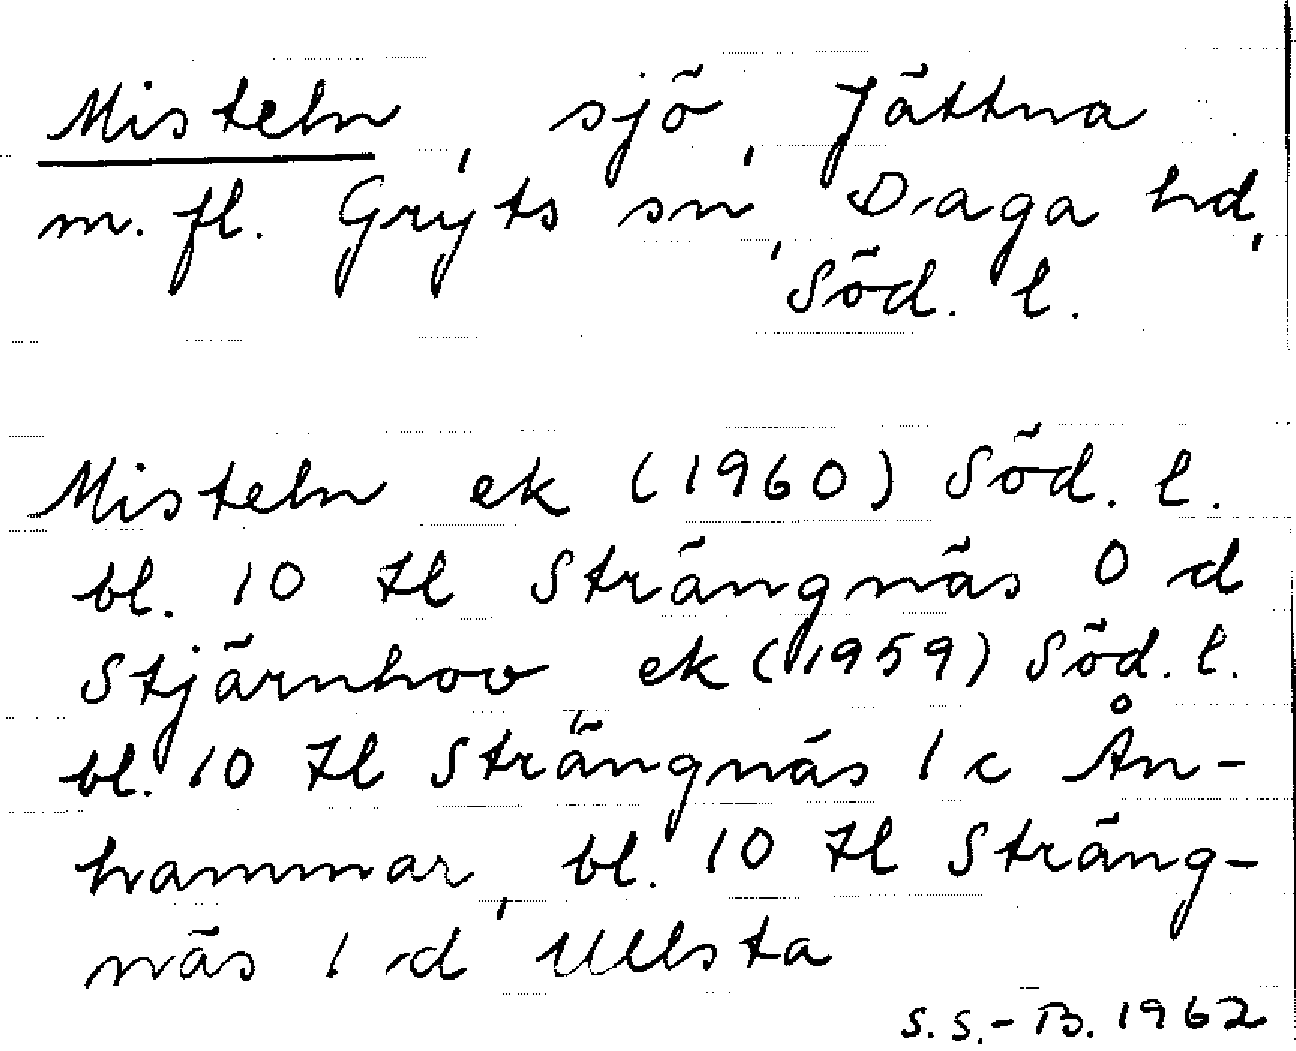 Misteln, sjö, Jättna
m. fl. Gryts sn, Daga hd,
Söd. l.
Misteln ek (1960) Söd. l.
bl. 10 H Strängnäs 0 d
Stjärnhov ek (1959) Söd. l.
bl. 10 H Strängnäs 1 c Ån-
hammar, bl. 10 H Sträng-
näs 1 d Ullsta
S. S.-B. 1962